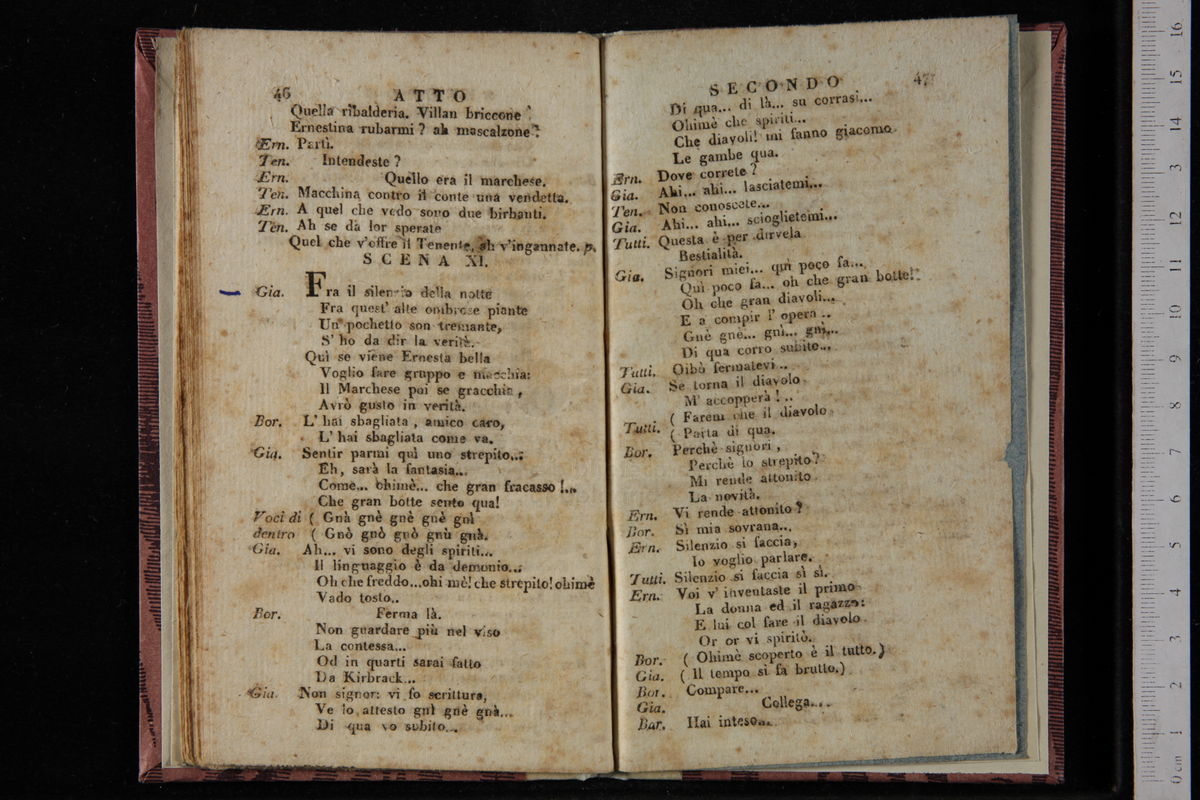 46
ATTO
Quella ribalderia. Villan briccone
Ernestina rubarmi? ah mascalzone?
Ern. Partì.
Ten. Intendeste?
Ern. Quello era il marchese.
Ten. Macchina contro il conte una vendetta.
Ern. A quel che vedo sono due birbanti.
Ten. Ah se da lor sperate
Quel che v'offre il Tenente, ah v'ingannate. p.
SCENA XI.
Gia. Fra il silenzio della notte
Fra quest' alte ombrose piante
Un pochetto son tremante,
S' ho da dir la verità.
Quì se viene Ernesta bella
Voglio fare gruppo e macchia:
Il Marchese poi se gracchia,
Avrò gusto in verità.
Bor. L' hai sbagliata, amico caro,
L' hai sbagliata come va.
Gia. Sentir parmi quì uno strepito..:
Eh, sarà la fantasia...
Come... ohimè... che gran fracasso!...
Che gran botte sento qua!
Voci di ( Gnà gnè gnè gnè gnì
dentro ( Gnò gnò gnò gnù gnà.
Gia. Ah... vi sono degli spiriti...
Il linguaggio è da demonio..:
Oh che freddo...ohi mè! che strepito! ohimè
Vado tosto..
Bor. Ferma là.
Non guardare più nel viso
La contessa...
Od in quarti sarai fatto
Da Kirbrack...
Gia. Non signor: vi fo scrittura,
Ve lo attesto gnì gnè gnà...
Di qua vo subito...
SECONDO
47
Di qua... di là... su corrasi...
Ohimè che spiriti...
Che diavoli! mi fanno giacomo
Le gambe qua.
Ern. Dove correte?
Gia. Ahi... ahi... lasciatemi...
Ten. Non conoscete...
Gia. Ahi... ahi... scioglietemi...
Tutti. Questa è per dirvela
Bestialità.
Gia. Signori miei... quì poco fa...
Quì poco fa... oh che gran botte!
Oh che gran diavoli...
E a compir l' opera..
Gnè gnè... gnì... gnì...
Di qua corro subito...
Tutti. Oibò fermatevi..
Gia. Se torna il diavolo
M' accopperà!..
Tutti. ( Farem che il diavolo
( Parta di qua.
Bor. Perchè signori,
Perchè lo strepito?
Mi rende attonito
La novità.
Ern. Vi rende attonito?
Bor. Sì mia sovrana...
Ern. Silenzio si faccia,
Io voglio parlare.
Tutti. Silenzio si faccia sì sì.
Ern. Voi v' inventaste il primo
La donna ed il ragazzo:
E lui col fare il diavolo
Or or vi spiritò.
Bor. ( Ohimè scoperto è il tutto.)
Gia. ( Il tempo si fa brutto.)
Bor. Compare...
Gia. Collega...
Bar. Hai inteso...